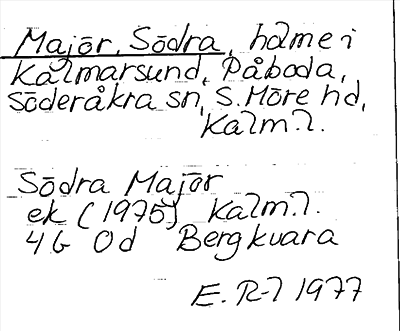 Majör, Södra, holme i
Kalmarsund, Påboda,
Söderåkra sn, S. Möre hd,
Kalm.l.
Södra Majör
ek (1975) Kalm.l.
4G 0d Bergkvara
E. R-l 1977